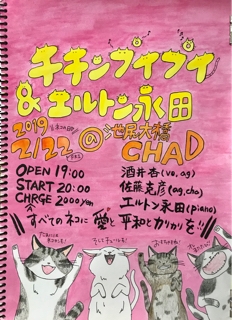 チキンブイブイ
&エルトン永田
2019
2/22
の池尻大橋
CHAD
OPEN 19:00
START 20:00
CHRGE 2000yen
酒井杏(vo,ag)
佐藤克彦(ag,cho)
エルトン永田(piano)
すべてのネコに愛と平和とカリカリを!!